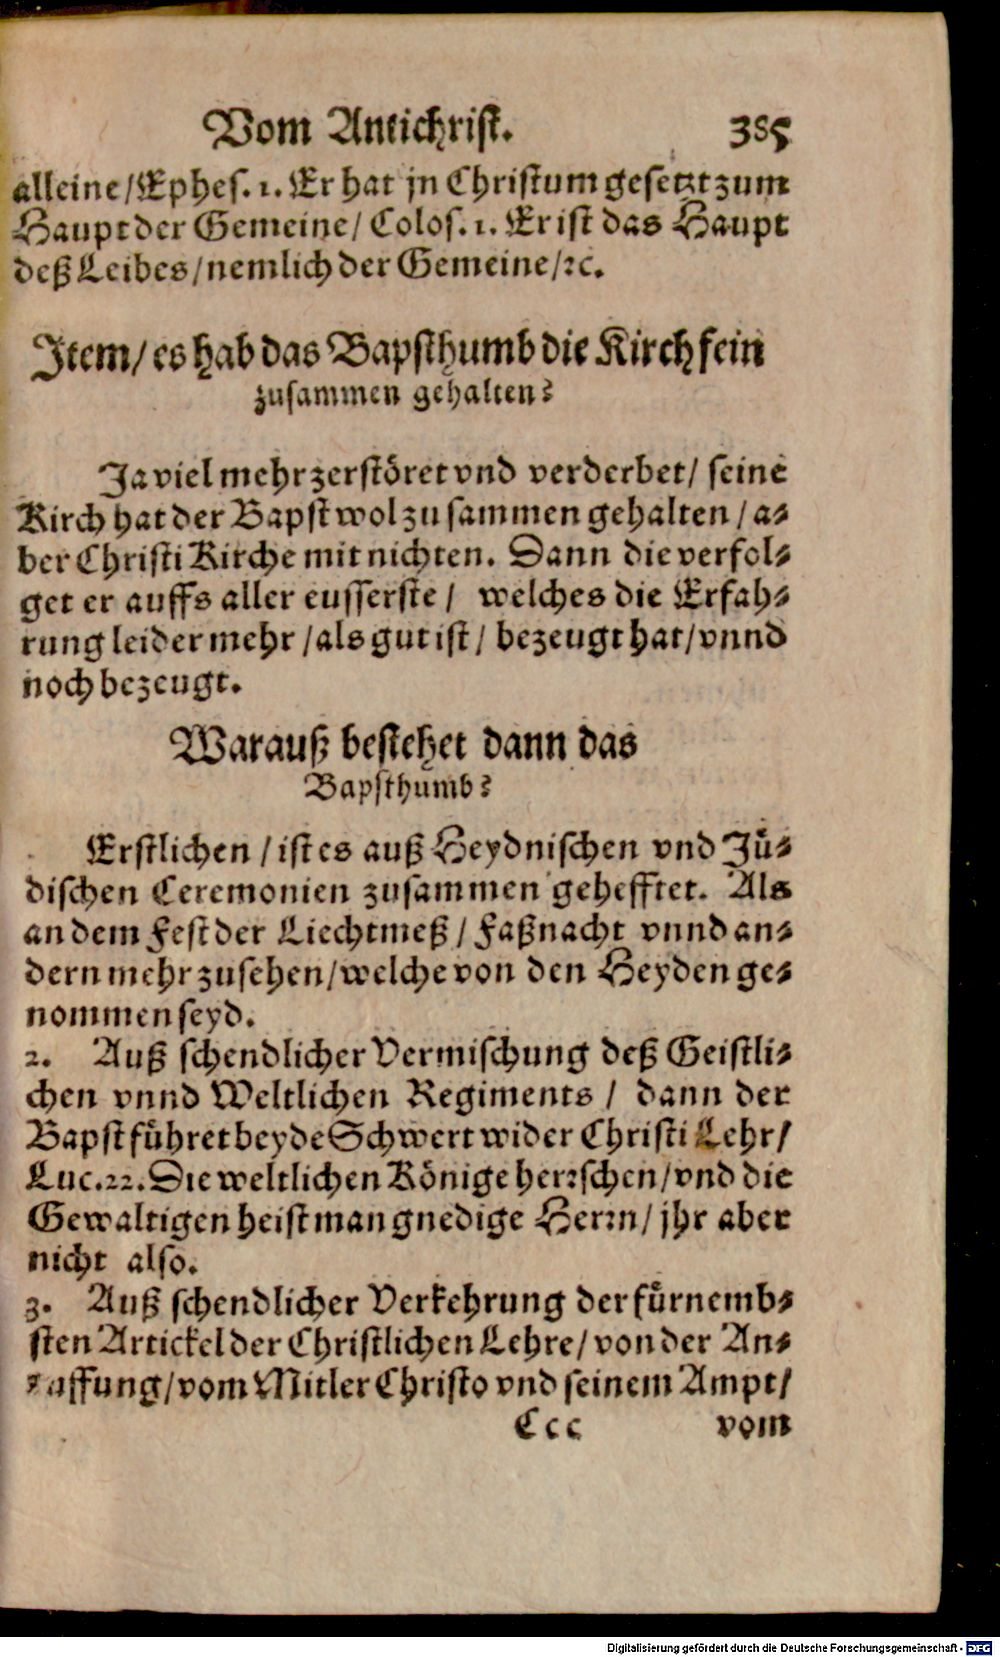 Vom Antichrist. 385
alleine/Ephes. 1. Er hat jn Christum gesetzt zum
Haupt der Gemeine/ Colos. 1. Er ist das Haupt
deß Leibes/nemlich der Gemeine/ꝛc.
Item/ es hab das Bapsthumb die Kirch fein
zusammen gehalten?
Ja viel mehr zerstöret vnd verderbet/ seine
Kirch hat der Bapst wol zusammen gehalten/ a⸗
ber Christi Kirche mit nichten. Dann die verfol⸗
get er auffs aller eusserste/ welches die Erfah⸗
rung leider mehr/als gut ist/ bezeugt hat/vnnd
noch bezeugt.
Warauß bestehet dann das
Bapsthumb?
Erstlichen/ist es auß Heydnischen vnd Jü⸗
dischen Ceremonien zusammen gehefftet. Als
an dem Fest der Liechtmeß/ Faßnacht vnnd an⸗
dern mehr zusehen/welche von den Heyden ge⸗
nommen seyd.
2. Auß schendlicher Vermischung deß Geistli⸗
chen vnnd Weltlichen Regiments/ dann der
Bapst führet beyde Schwert wider Christi Lehr/
Luc. 22. Die weltlichen Könige herꝛschen/vnd die
Gewaltigen heist man gnedige Herꝛn/ jhr aber
nicht also.
3. Auß schendlicher Verkehrung der fürnemb⸗
sten Artickel der Christlichen Lehre/ von der An⸗
ruffung/vom Mitler Christo vnd seinem Ampt/
Ccc vom
Digitalisierung gefördert durch die Deutsche Forschungsgemeinschaft - DFG